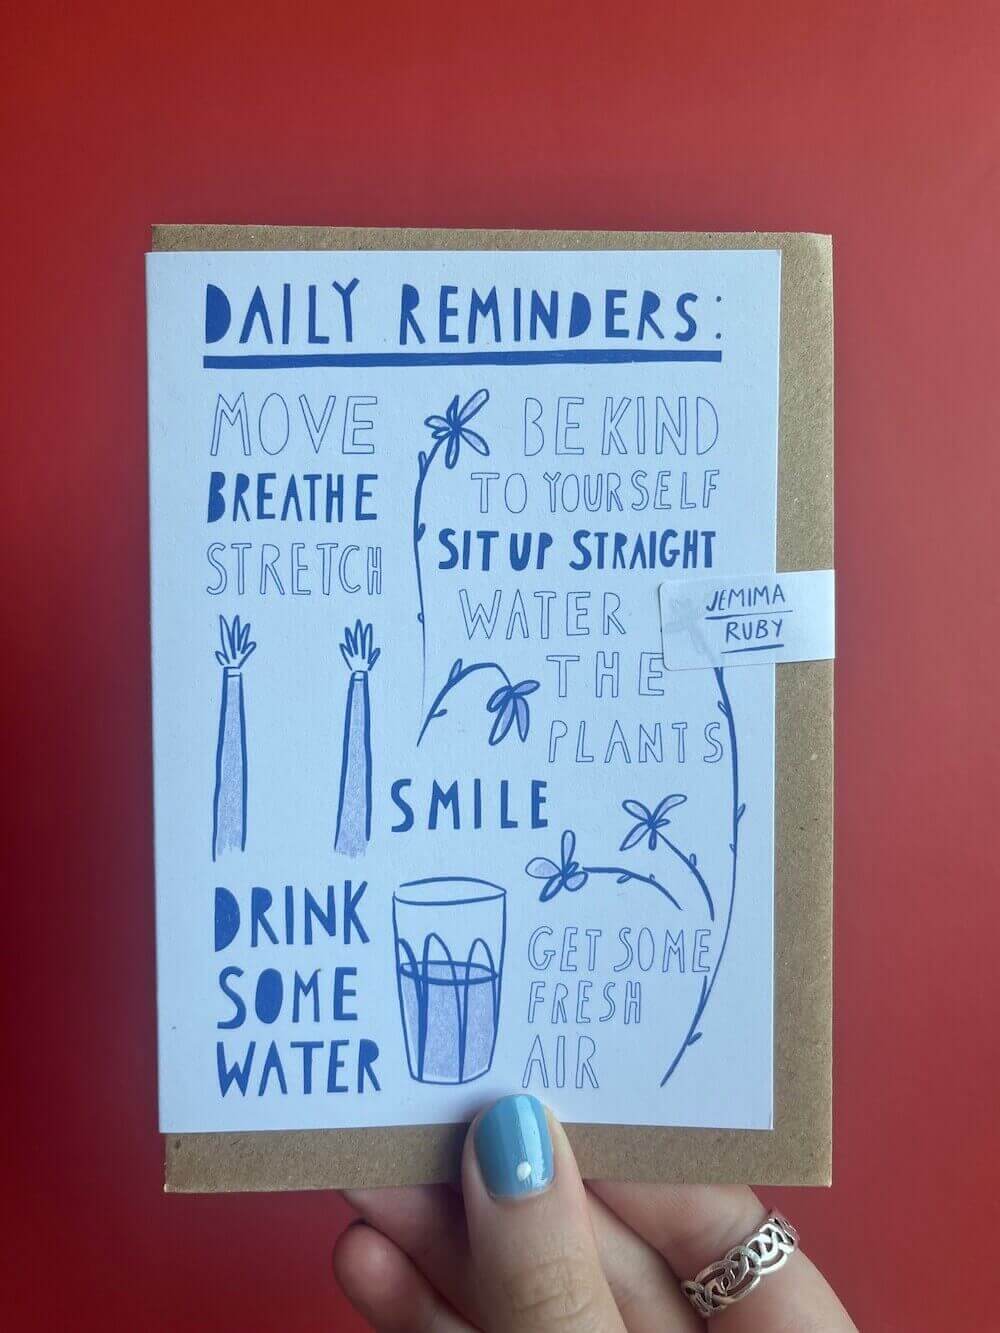 DAILY REMINDERS:
MOVE
BREATHE
STRETCH
BE KIND
TO YOURSELF
SIT UP STRAIGHT
WATER
THE
PLANTS
JEMIMA
RUBY
SMILE
DRINK
SOME
WATER
GET SOME
FRESH
AIR